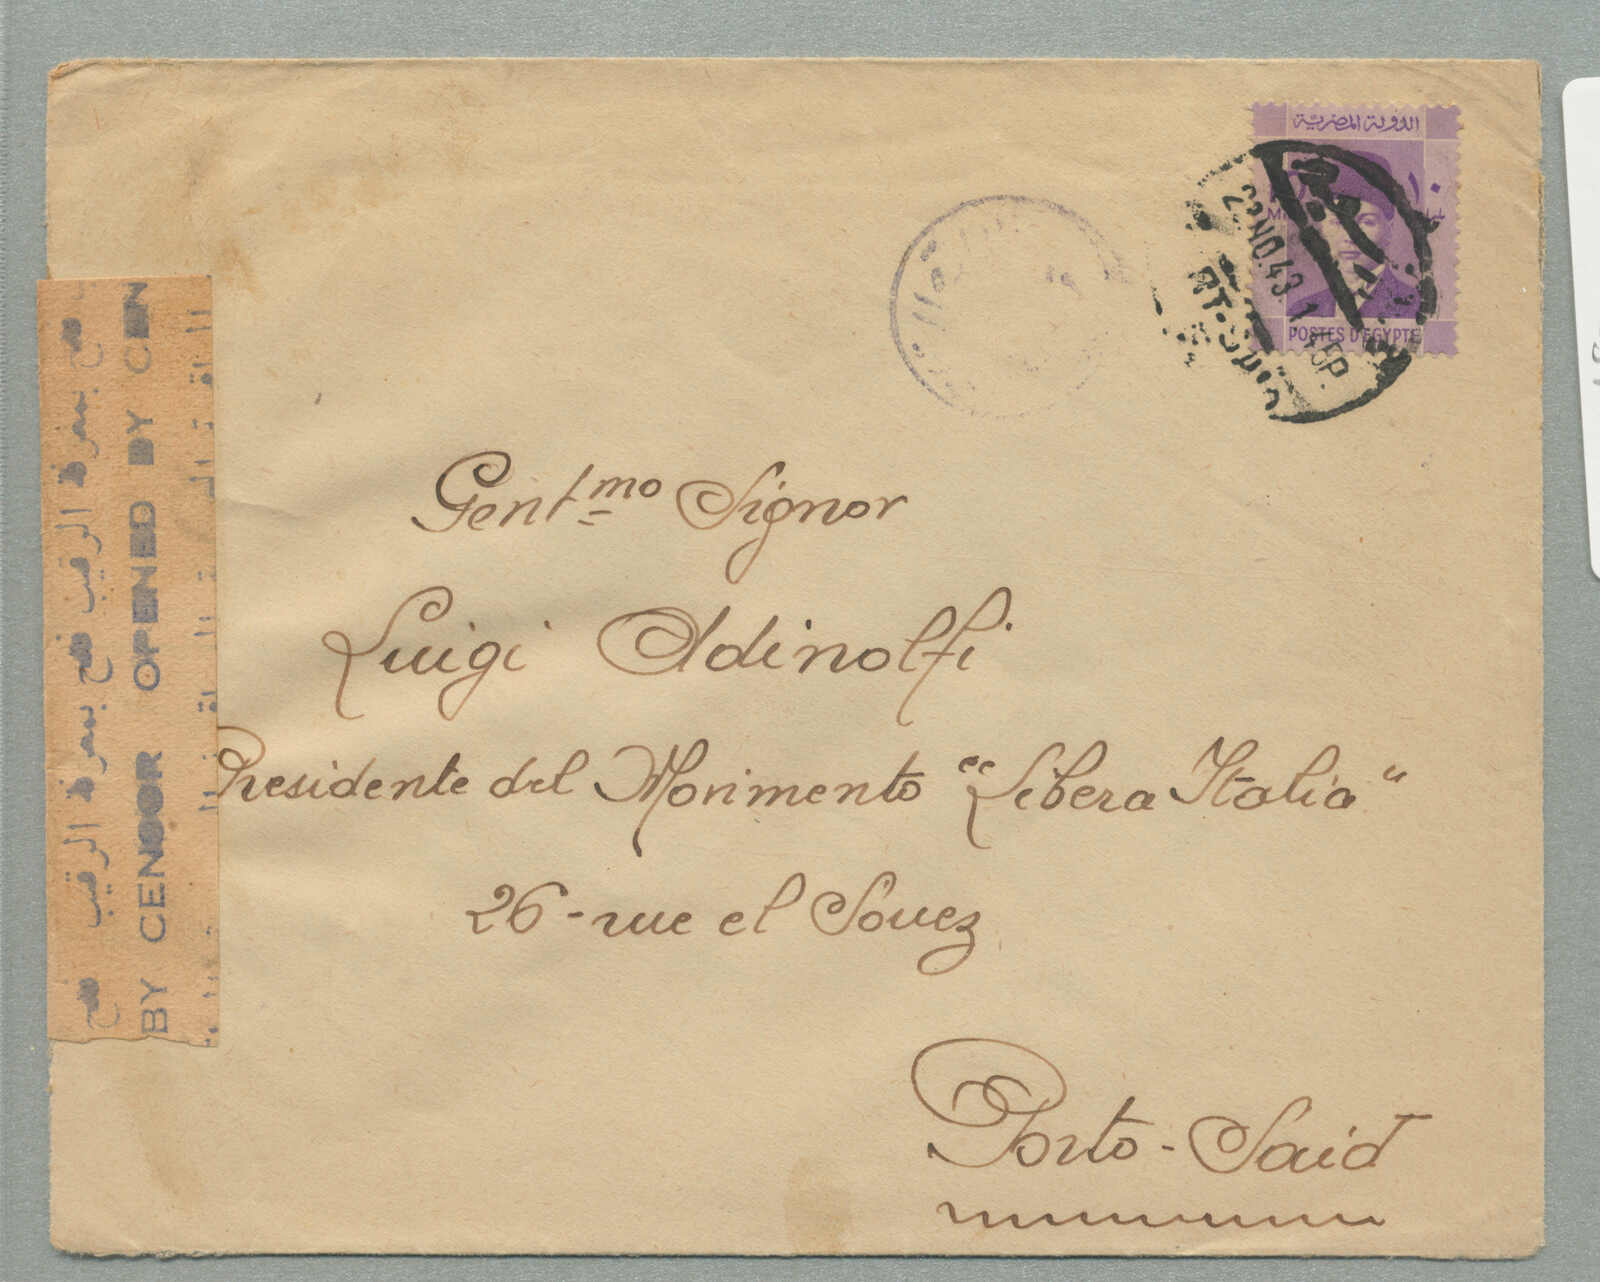 الدولة المصرية
١٠
POSTES D'EGYPTE
22 NO. 43. 1
Gent.mo Signor
Luigi Adinolfi
Presidente del Movimento "Libera Italia"
26 - rue el Souez
Porto - Said
فتح بمعرفة الرقيب فتح بمعرفة الرقيب فتح
BY CENSOR OPENED BY CEN